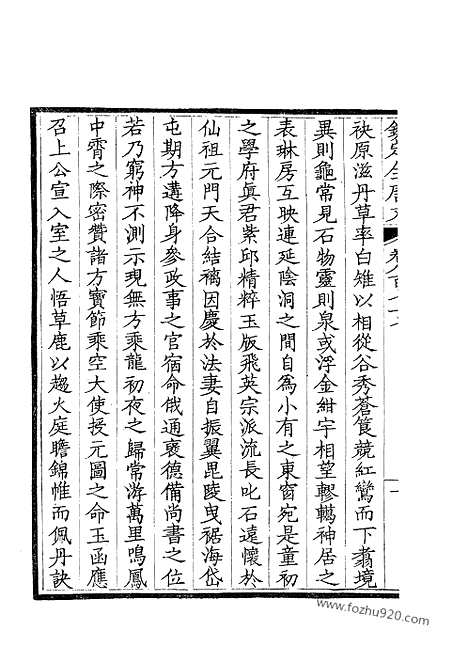 袂原滋丹草率白雉以相從谷秀蒼筤競紅鸞而下翥境
異則龜常見石物靈則泉或浮金紺宇相望轇轕神居之
表琳房互映連延陰洞之間自為小有之東窗宛是童初
之學府眞君紫邱精粹玉版飛英宗派流長叱石遠懷於
仙祖元門天合結褵因慶於法妻自振翼毘陵曳裾海岱
屯期方遘降身參政事之官宿命俄通褒德備尚書之位
若乃窮神不測示現無方乘龍初夜之歸常游萬里鳴鳳
中霄之際密贊諸方寶節乘空大使授元圖之命玉函應
召上公宣入室之人悟草鹿以趨火庭瞻錦帷而佩丹訣
www.fozhu920.com